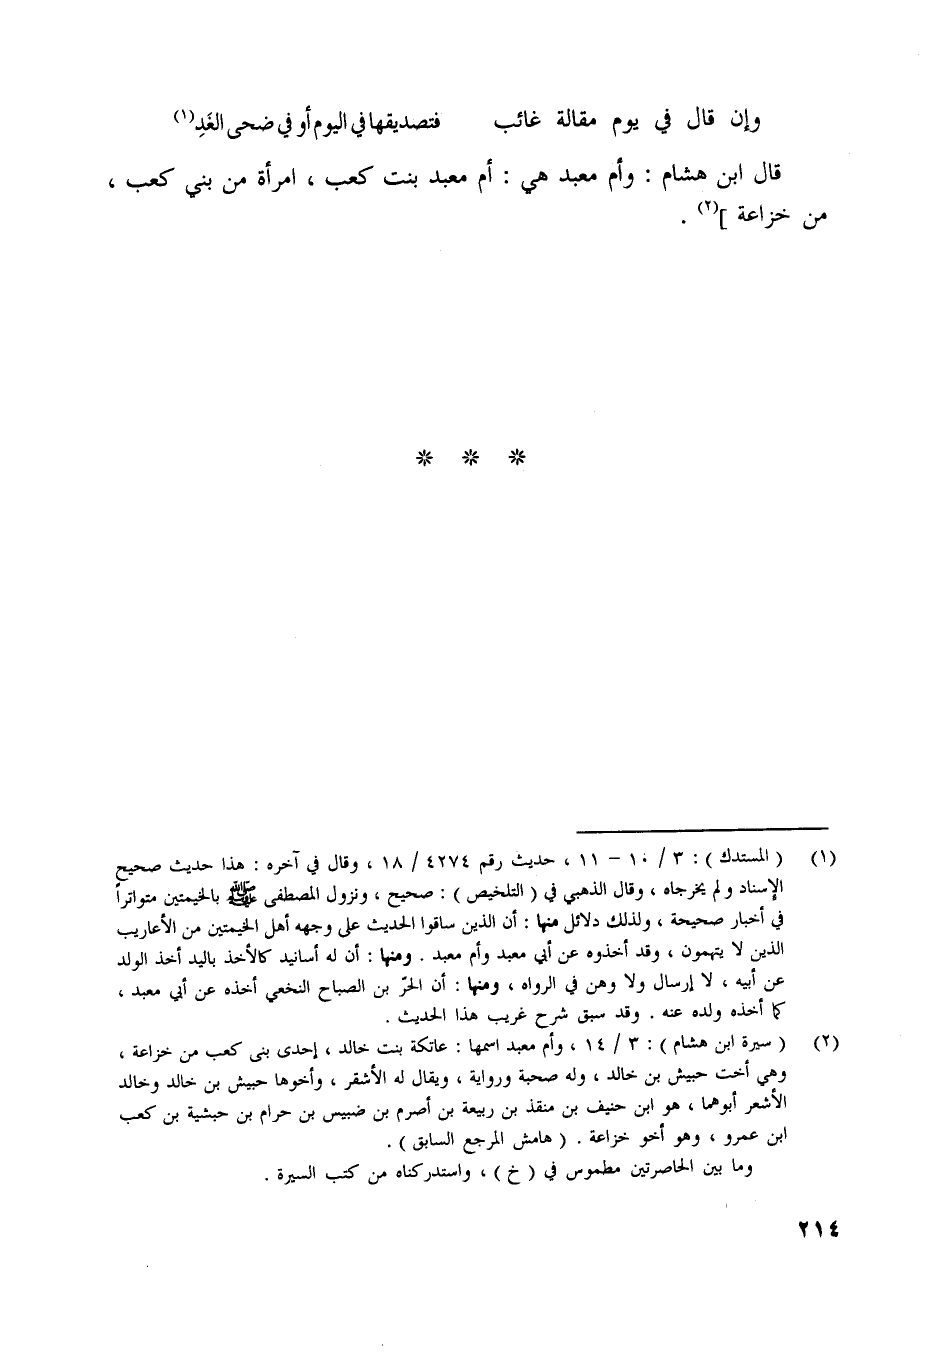 وإن قال في يوم مقالة غائب فتصديقها في اليوم أو في ضحى الغَدِ(١)
قال ابن هشام : وأم معبد هي : أم معبد بنت كعب ، امرأة من بني كعب ،
من خزاعة ](٢) .
* * *
(١) ( المستدك ) : ٣ / ١٠ – ١١ ، حديث رقم ٤٢٧٤ / ١٨ ، وقال في آخره : هذا حديث صحيح
الإسناد و لم يخرجاه ، وقال الذهبي في ( التلخيص ) : صحيح ، ونزول المصطفى ﷺ بالخيمتين متواتراً
في أخبار صحيحة ، ولذلك دلائل منها : أن الذين ساقوا الحديث على وجهه أهل الخيمتين من الأعاريب
الذين لا يتهمون ، وقد أخذوه عن أبي معبد وأم معبد . ومنها : أن له أسانيد كالأخذ باليد أخذ الولد
عن أبيه ، لا إرسال ولا وهن في الرواه ، ومنها : أن الحرّ بن الصباح النخعي أخذه عن أبي معبد ،
كما أخذه ولده عنه . وقد سبق شرح غريب هذا الحديث .
(٢) ( سيرة ابن هشام ) : ٣ / ١٤ ، وأم معبد اسمها : عاتكة بنت خالد ، إحدى بنى كعب من خزاعة ،
وهي أخت حبيش بن خالد ، وله صحبة ورواية ، ويقال له الأشقر ، وأخوها حبيش بن خالد وخالد
الأشعر أبوهما ، هو ابن حنيف بن منقذ بن ربيعة بن أصرم بن ضبيس بن حرام بن حبشية بن كعب
ابن عمرو ، وهو أخو خزاعة . ( هامش المرجع السابق ) .
وما بين الحاصرتين مطموس في ( خ ) ، واستدركناه من كتب السيرة .
٢١٤